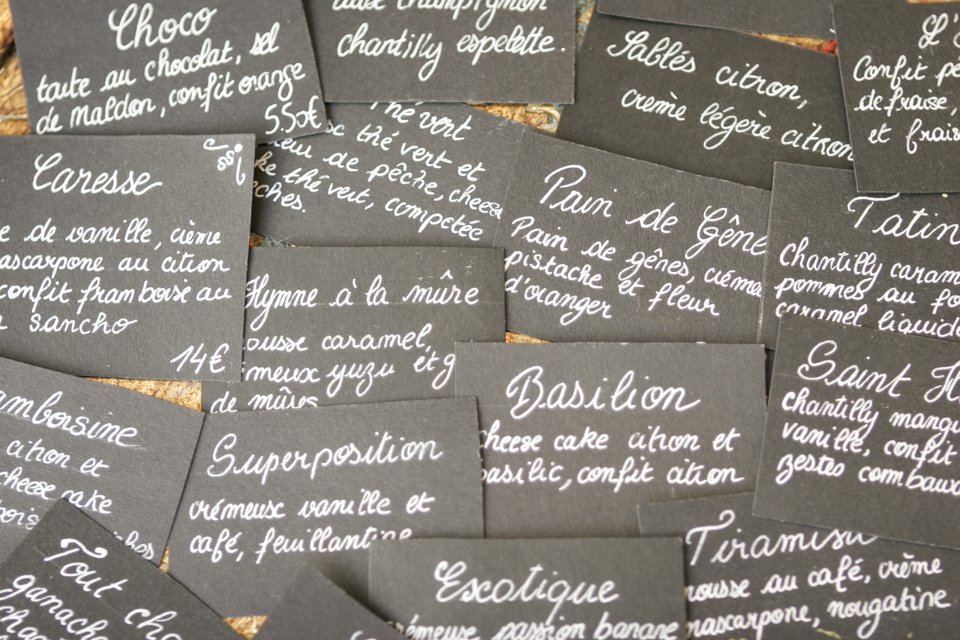 Choco
taute au chocolat, sel
de maldon, confit orange
5.50€
champignon
chantilly espelette.
Sablés citron,
crème légère citron
Confit
de fraise,
et frais
thé vert
thé vert et
de pêche, cheese
ke thé vert, compotée
ches.
Caresse
e de vanille, crème
ascarpone au citron
confit framboise au
sancho
14€
Pain de Gêne
Pain de gênes, créme
pistache et fleur
d'oranger
Tatin
chantilly caram
pommes au fo
caramel liquide
Hymne à la mûre
ousse caramel,
meux yuzu et g
de mûres
Basilion
cheese cake citron et
basilic, confit citron
Saint H
chantilly mangu
vanille, confit
zestes combawa
amboisine
citron et
cheese cake
bois
ches
Superposition
crémeux vanille et
café, feuillantine
Tout cho
ganache
choc
Exotique
émeuse passion banane
Tiramisu
ousse au café, crème
mascarpone, nougatine